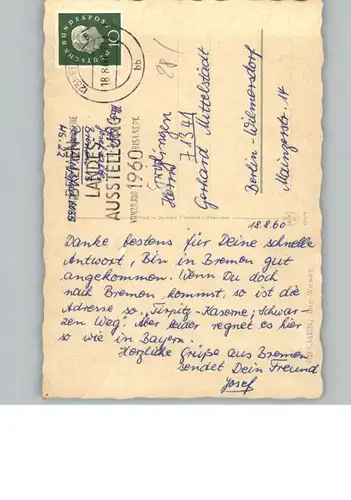 DEUTSCHE BUNDESPOST
10
18.8.60
bb
BREMEN
LANDES
AUSSTELLUNG
1960
Herrn
Gerhard Mittelstädt
Berlin-Wilmersdorf
Mainzerstr. 14
18.8.60
Danke bestens für Deine schnelle
Antwort, Bin in Bremen gut
angekommen. Wenn Du doch
nach Bremen kommst, so ist die
Adresse so „Tirpitz-Kaserne, Schwar-
zen Weg". Aber leider regnet es hier
so wie in Bayern.
Herzliche Grüße aus Bremen
sendet Dein Freund
Josef